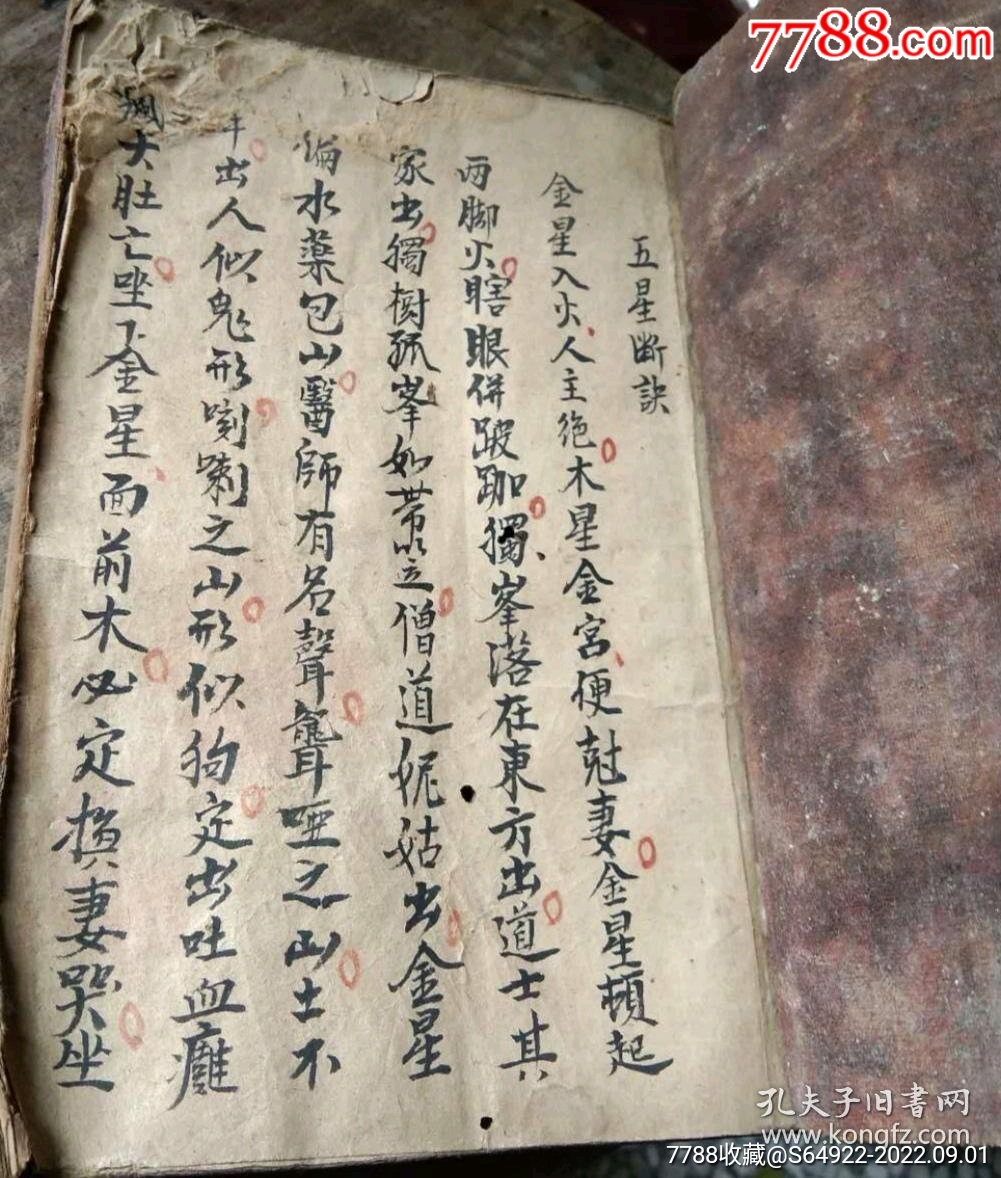 7788.com
五星断訣
金星入火人主绝木星金宫便尅妻金星頓起
两脚火瞎眼併跛跏獨峯落在東方出道士其
家出獨樹孤峯如帶笠僧道妮姑出金星
水藥包山醫師有名聲聾啞之山土不
出人似鬼形之山形似狗定出吐血癱
大肚亡坐下金星面前木必定損妻哭坐
孔夫子旧书网
www.kongfz.com
7788收藏@S64922-2022.09.01